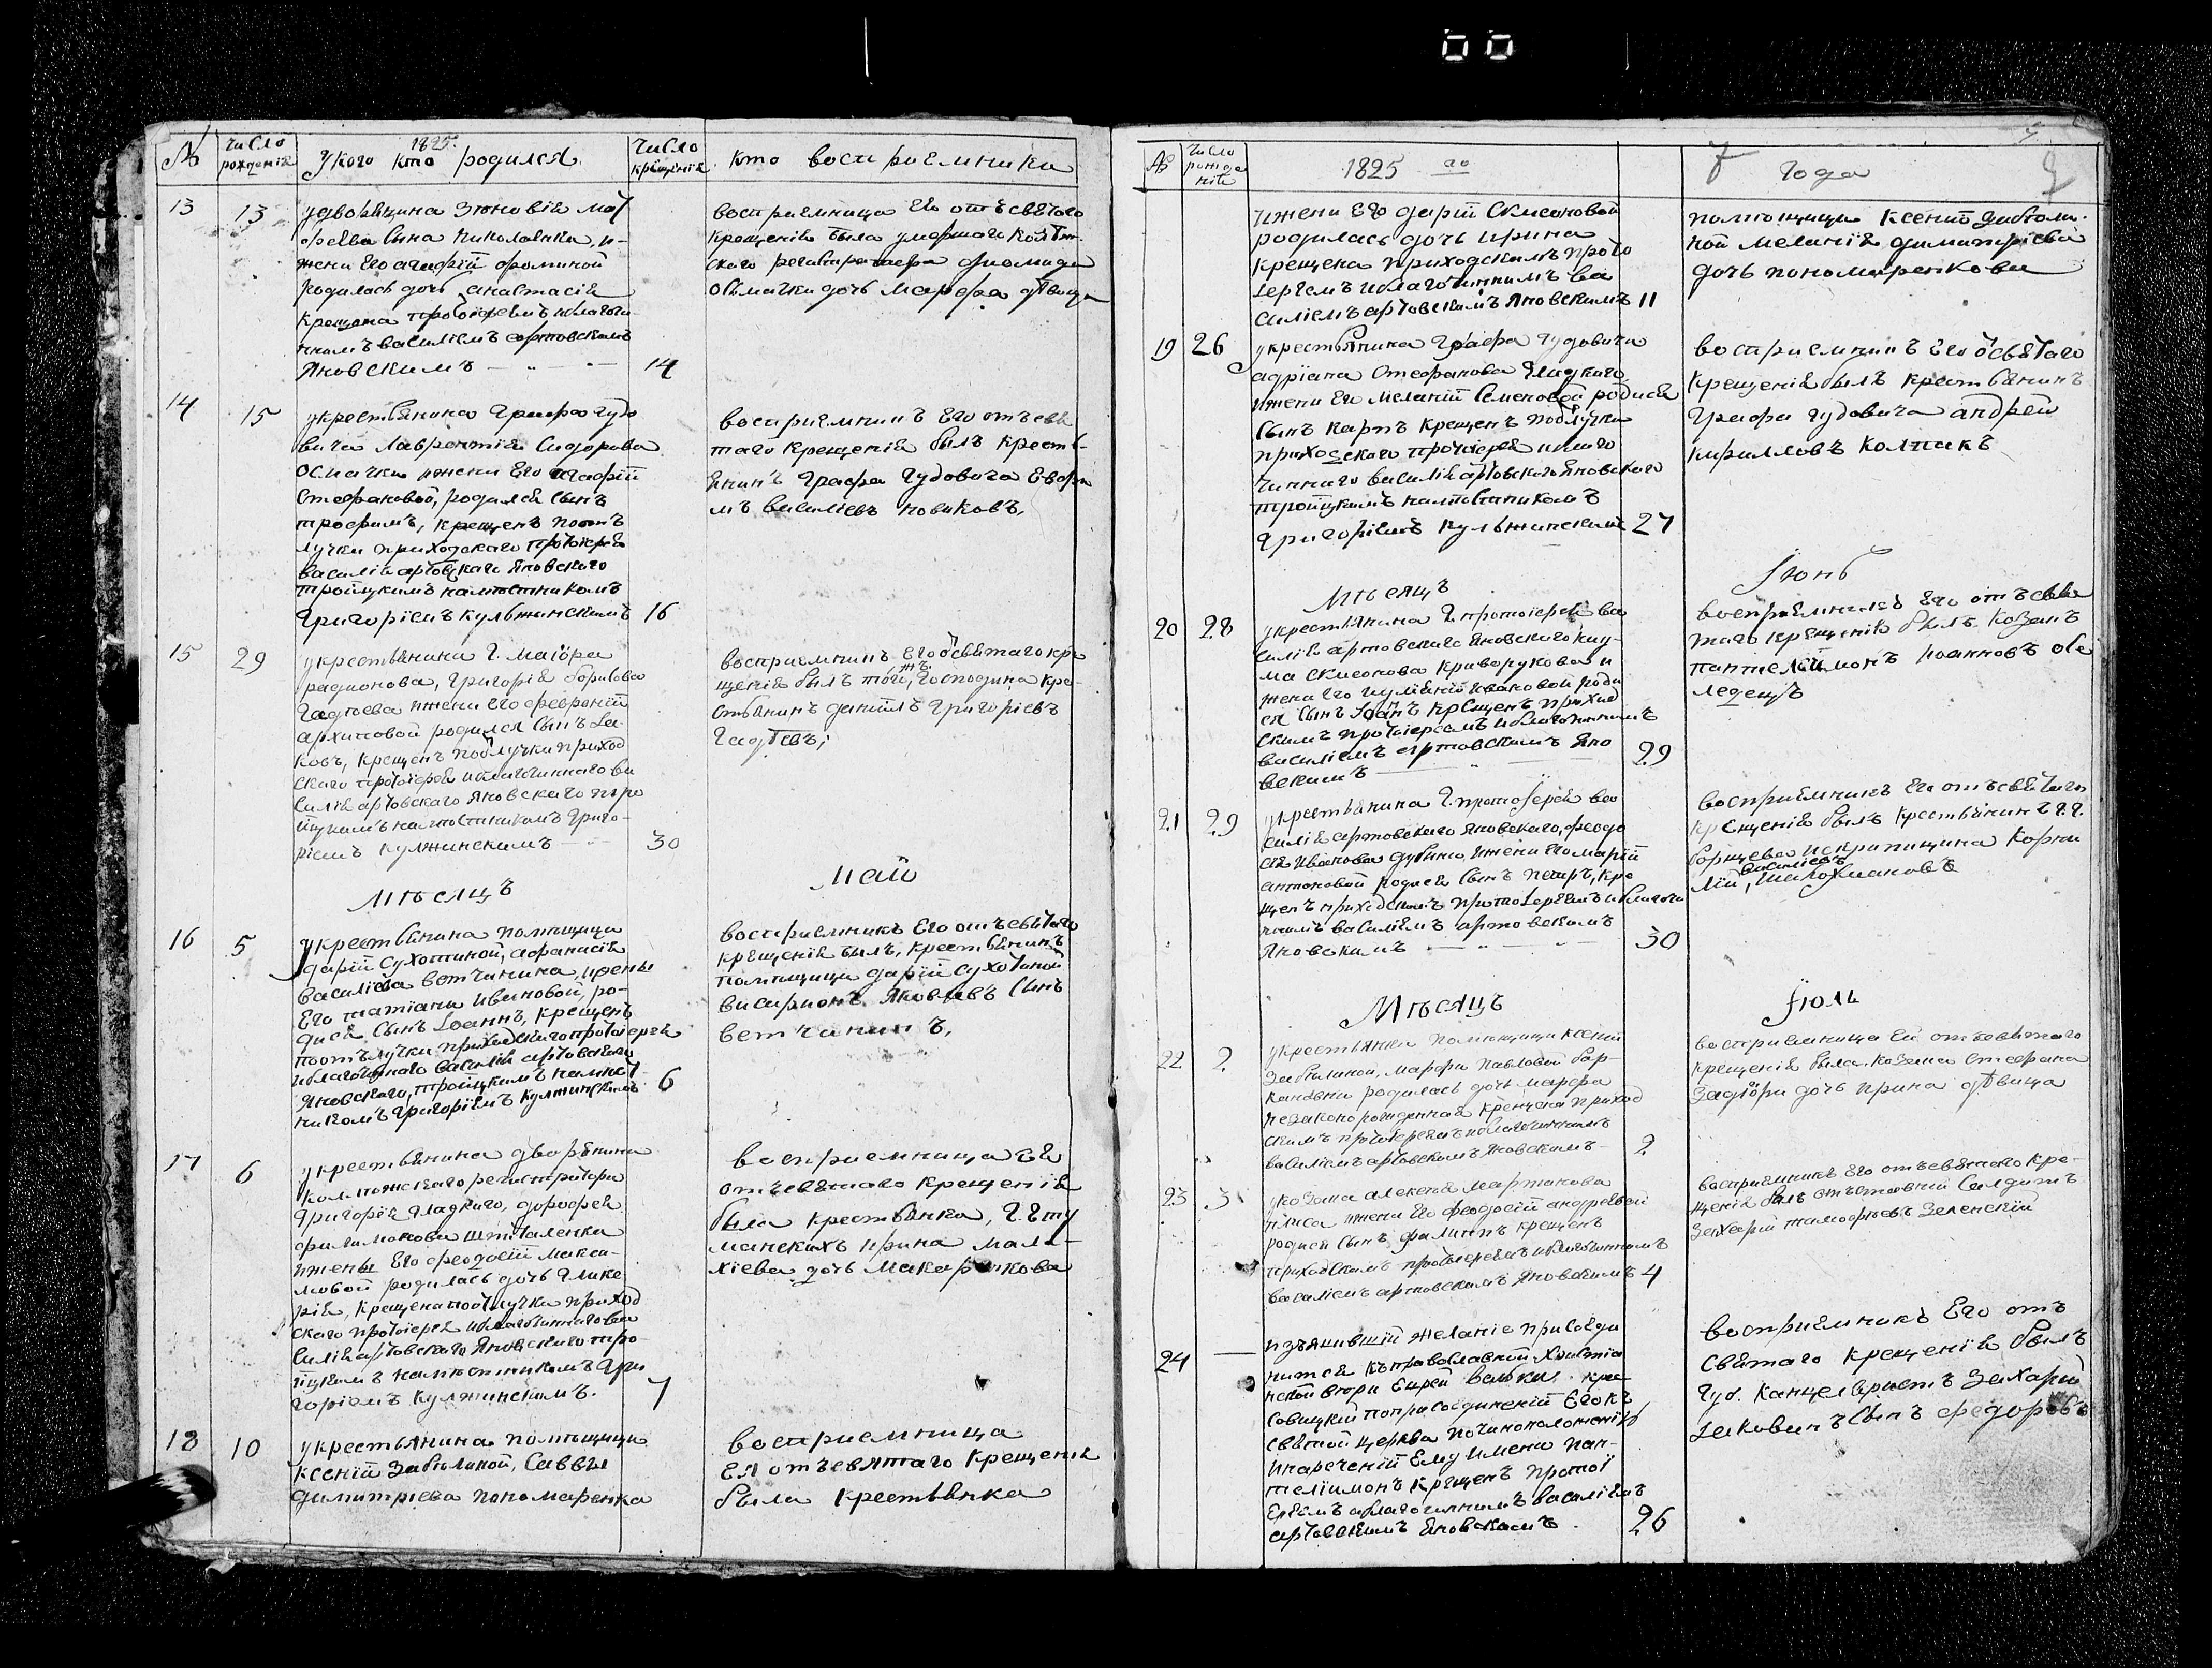 №
число рожденія
1825:
У кого кто родился
число крещенія
кто восприемники
13
13
у дворянина Зиновія мат
фѣева сына Николаенка, и
жени его агафіи фоминой
родилась дочь анастасія
крещена протоіереемъ и благочи
ннымъ василіемъ артовскимъ
Яновскимъ
14
восприемница его отъ святаго
крещенія была умершаго
регистратора диомида
осмачки дочь марфа дѣвица
14
15
у крестьянина Графа гудо
вича лаврентія Сидорова
осмачки и жени его агафіи
Стефановой, родился сынъ
трофимъ, крещенъ по отъ
лучки приходскаго протоіерея
василія артовскаго Яновскаго
троицкимъ намѣстникомъ
григоріемъ кульжинскимъ
16
восприемникъ его отъ свя
таго крещенія былъ кресть
янинъ графа гудовича Ефи
мъ василіевъ новиковъ,
15
29
у крестьянина г. маіора
радионова, григорія борисова
гадѣева и жени его февроніи
архиповой родился сынъ Іа
ковъ, крещенъ по отлучки приход
скаго протоіерея и благочиннаго ва
силія артовскаго Яновскаго тро
ицкимъ намѣстникомъ григо-
ріемъ кулжинскимъ
30
восприемникъ его ѿ святаго кре
щенія былъ тойжъ, господина кре-
стьянинъ даніилъ григоріевъ
гадѣевъ;
мѣсяцъ
май
16
5
у крестьянина помѣщици
даріи Сухотиной, афанасія
василіева ветчинина, и жены
его татіани ивановой, ро-
дися сынъ Іоаннъ, крещенъ
по отълучки приходскаго протоіерея
и благочиннаго василія артовскаго
Яновскаго, троицкимъ намѣст
никомъ григоріемъ кулжинскимъ
6
восприемникъ его отъ святаго
крещенія былъ, крестьянинъ
помѣщици даріи сухотиной
висаріонъ Яковлевъ сынъ
ветчининъ,
17
6
у крестьянина дворянина
коллѣжскаго регистратора
григорія гладкаго, дорофея
филимонова шти
и жены его феодосіи макси-
мовой родилась дочь глике
рія, крещена по отлучки приход
скаго протоіерея и благочиннаго ва
силія артовскаго Яновскаго тро-
ицкимъ намѣстникомъ гри
горіемъ кулжинскимъ.
7
восприемница ея
отъ святаго крещенія
была крестьянка, г.
манскихъ ирина мала-
хіева дочь макаренкова
18
10
у крестьянина помѣщици
ксеніи Забѣлиной, Саввы
димитріева пономаренка
восприемница
ея отъ святаго крещенія
была крестьянка
№
число рожде нія
1825 го
7
года
и жени его даріи Симоновой
родилась дочь ирина
крещена приходскимъ прото
іереемъ и благочиннымъ ва
силіемъ артовскимъ Яновскимъ
11
помѣщици ксеніи Забѣли-
ной меланія димитріева
дочь пономаренкова
19
26
у крестьянина графа гудовича
адріана Стефанова гладкаго
и жени его меланіи Семеновой родися
сынъ карпъ крещенъ по отлучки
приходскаго протоіерея и благо
чиннаго василія артовскаго Яновскаго
троицкимъ намѣстникомъ
григоріемъ кульжинскимъ
27
восприемникъ его ѿ святаго
крещенія былъ крестьянинъ
графа гудовича андрей
кирилловъ колпакъ
мѣсяцъ
Іюнь
20
28
у крестьянина г. протоіерея ва
силія артовскаго Яновскаго куз-
ма Симонова криворукова и
жени его иуліаніи ивановой роди
ся сынъ Іоаннъ крещенъ приход
скимъ протоіереемъ и благочиннимъ
василіемъ артовскимъ Яно
вскимъ
29
восприемникъ его отъ свя
таго крещенія былъ козакъ
пантелеймонъ іоанновъ
21
29
у крестьянина г. протоіерея ва
силія артовскаго Яновскаго, феодо
сія иванова дубини и жени его маріи
антоновой родися сынъ петръ, кре
щенъ приходскимъ протоіереемъ и благочи
ннимъ василіемъ артовскимъ
Яновскимъ
30
восприемникъ его отъ святаго
крещенія былъ крестьянинъ г. г.
борщева искрипицина корни
лій василіевъ
мѣсяцъ
Іюль
22
2
у крестьянки помѣщици ксеніи
Забѣлиной, марфи павловой
родилась дочь марфа
незаконорожденная крещена приход
скимъ протоіереемъ и благочиннымъ
василіемъ артовскимъ Яновскимъ
2
восприемница ея отъ святаго
крещенія была, козака стефана
дочь ирина дѣвица
23
3
у козака алексея мартинова
и жени его феодосіи андреевой
родися сынъ филиппъ крещенъ
приходскимъ протоіереемъ и благочиннымъ
василіемъ артовскимъ Яновскимъ
4
восприемникъ его отъ святаго кре-
щенія былъ отъставній салдатъ
Захарій тимофѣевъ Зеленскій
24
изъявившій желаніе присоеди
нится къ православной христіа
нской вѣри еврей
по присоединеніи его къ
святой церкви по чиноположенію
и нареченіи ему имени пан-
телеймонъ крещенъ протоі
ереемъ и благочиннимъ василіемъ
артовскимъ Яновскимъ
26
восприемникъ его отъ
святаго крещенія былъ
губ. канцеляристъ Захарій
Іаковинъ сынъ федоровъ